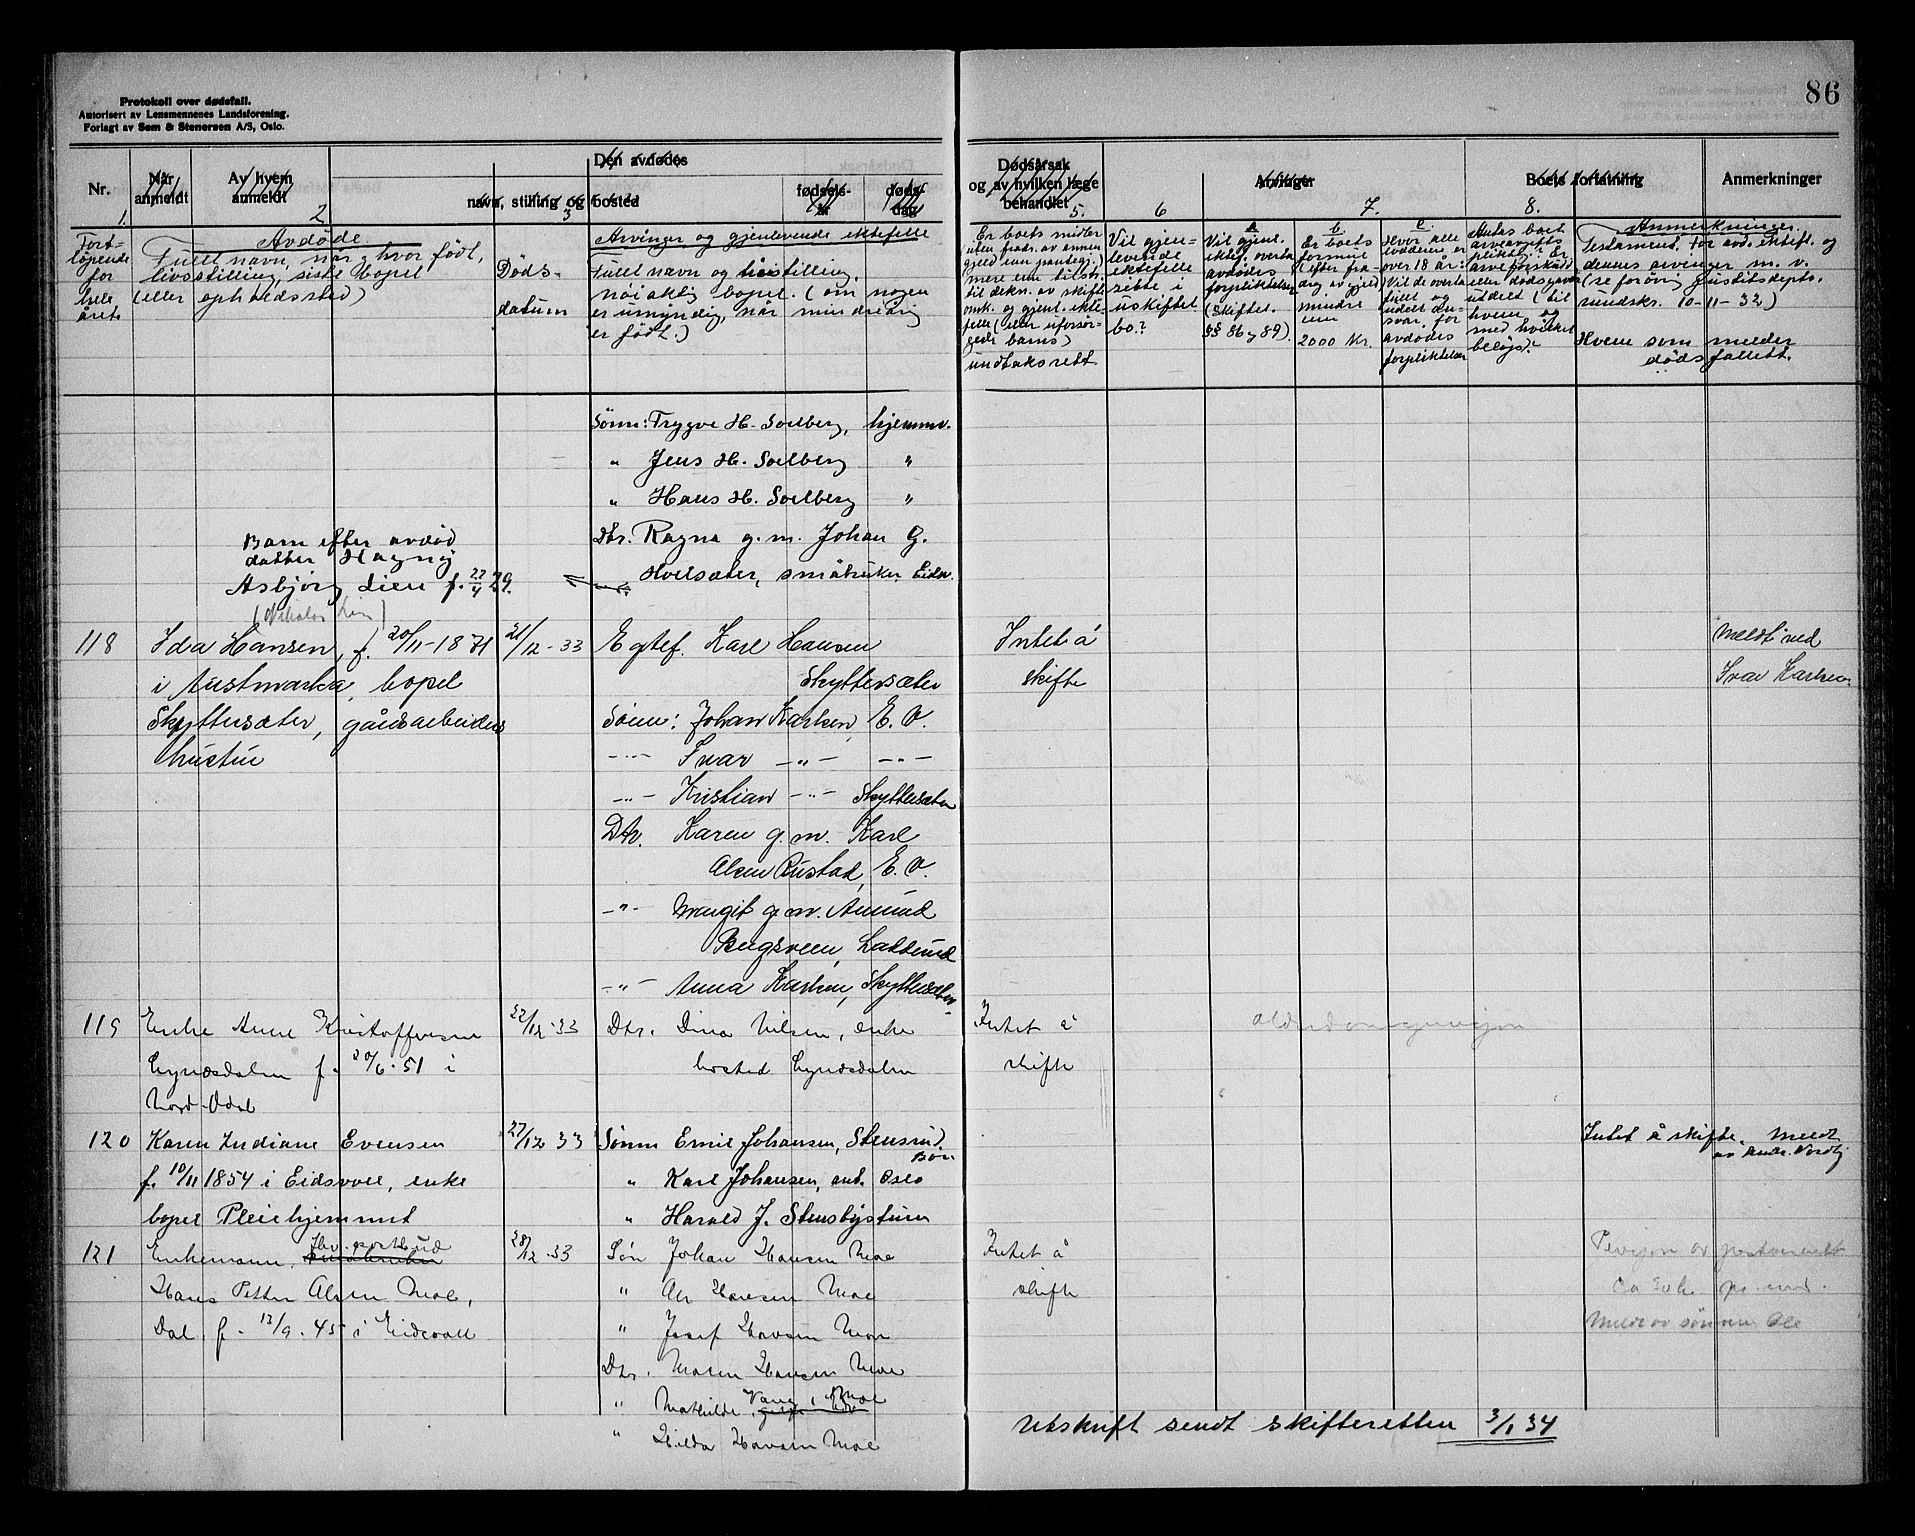 86
Protokoll over dødsfall.
Autorisert av Lensmennenes Landsforening.
Forlagt av Sem & Stenersen A/S, Oslo.
Nr. Når anmeldt Av hvem anmeldt Den avdødes navn, stilling og bosted fødsels- år døds- dag
Dødsårsak og av hvilken læge behandlet Arvinger Boets forfatning Anmerkninger
1. 2 3 5. 6 7. 8.
Fort-
løpende
for
hele
året
Avdøde
Fullt navn, når og hvor født,
livsstilling, siste bopel
(eller opholdssted)
Døds-
datum
Arvinger og gjenlevende ektefelle
Fullt navn og livsstilling,
nøiaktig bopel. (om nogen
er umyndig, når mindreårig
er født.)
Er boets midler
(uten fradr. av annen
gjeld enn pantegj.)
mere enn tilstr.
til dekn. av skifte
omk. og gjenl. ekte-
felle (eller uforsør-
gede barns)
undtaksrett
Vil gjen-
levende
ektefelle
sitte i
uskiftet
bo?
a
Vil gjenl.
ektef. overta
avdødes
forpliktelser
(skiftel.
§§ 86 og 89)
b
Er boets
formue
(efter fra-
drag av gjeld)
mindre
enn
2000 Kr.
c
Hvor alle
loddeiere er
over 18 år:
Vil de overta
fullt og
udelt an-
svar for
avdødes
forpliktelser
Antas boet
arveavgifts
pliktig: er
arveforskudd
eller dødsgaver
utdelt (til
hvem og
med hvilket
beløp)?
Anmerkninger.
Testament, for avd. ektef. og
dennes arvinger m. v.
(se forøvrig Justitsdepts.
rundskr. 10-11-32)
Hvem som melder
dødsfallet.
Sønn: Trygve H. Solberg, hjemmv.
" Jens H. Solberg "
" Hans H. Solberg "
Dtr. Ragna g. m. Johan G.
Hvelsæter, småbruker Eidsv.
Barn efter avdød
datter Hagny
Asbjørg Lien f. 22/4 29.
118 Ida Hansen, f. 20/11-1871 21/12-33 Egtef. Karl Hansen Intet å Meldt ved
i Austmarka, bopel Skyttersæter skifte Ivar Karlsen
Skyttersæter, gårdsarbeiders Sønn: Johan Karlsen, E. V.
hustru -"- Ivar -"- -"-
-"- Kristian -"- Skyttersæter
Dtr. Karen g. m. Karl
Olsen Rustad, E. V.
-"- Margit g. m. Amund
Bergsveen,
-"- Anna Karlsen, Skyttersæter
119 Enke Anne Kristoffersen 22/12-33 Dtr. Dina Nilsen, enke Intet å
Lynæsdalen f. 20/6-51 i bosted Lynæsdalen skifte
Nord-Odal
120 Karen Indiane Evensen 27/12 33 Sønn Emil Johansen, Stensrud, Intet å skifte. Meldt
f. 10/11 1854 i Eidsvoll, enke " Karl Johansen, Oslo av Andr. Nordby
bopel Pleiehjemmet " Harald J. Stensbystuen
121 Enkemann, postbud 28/12-33 Søn Johan Hansen Moe Intet å Pensjon av postvesenet
Hans Petter Olsen Moe, " Ole Hansen Moe skifte
Dal f. 13/9-45 i Eidsvoll " Josef Hansen Moe Meldt av sønnen Ole
Dtr. Maren Hansen Moe
" Mathilde, Moe
" Hilda Hansen Moe
Utskrift sendt skifteretten 3/1 34